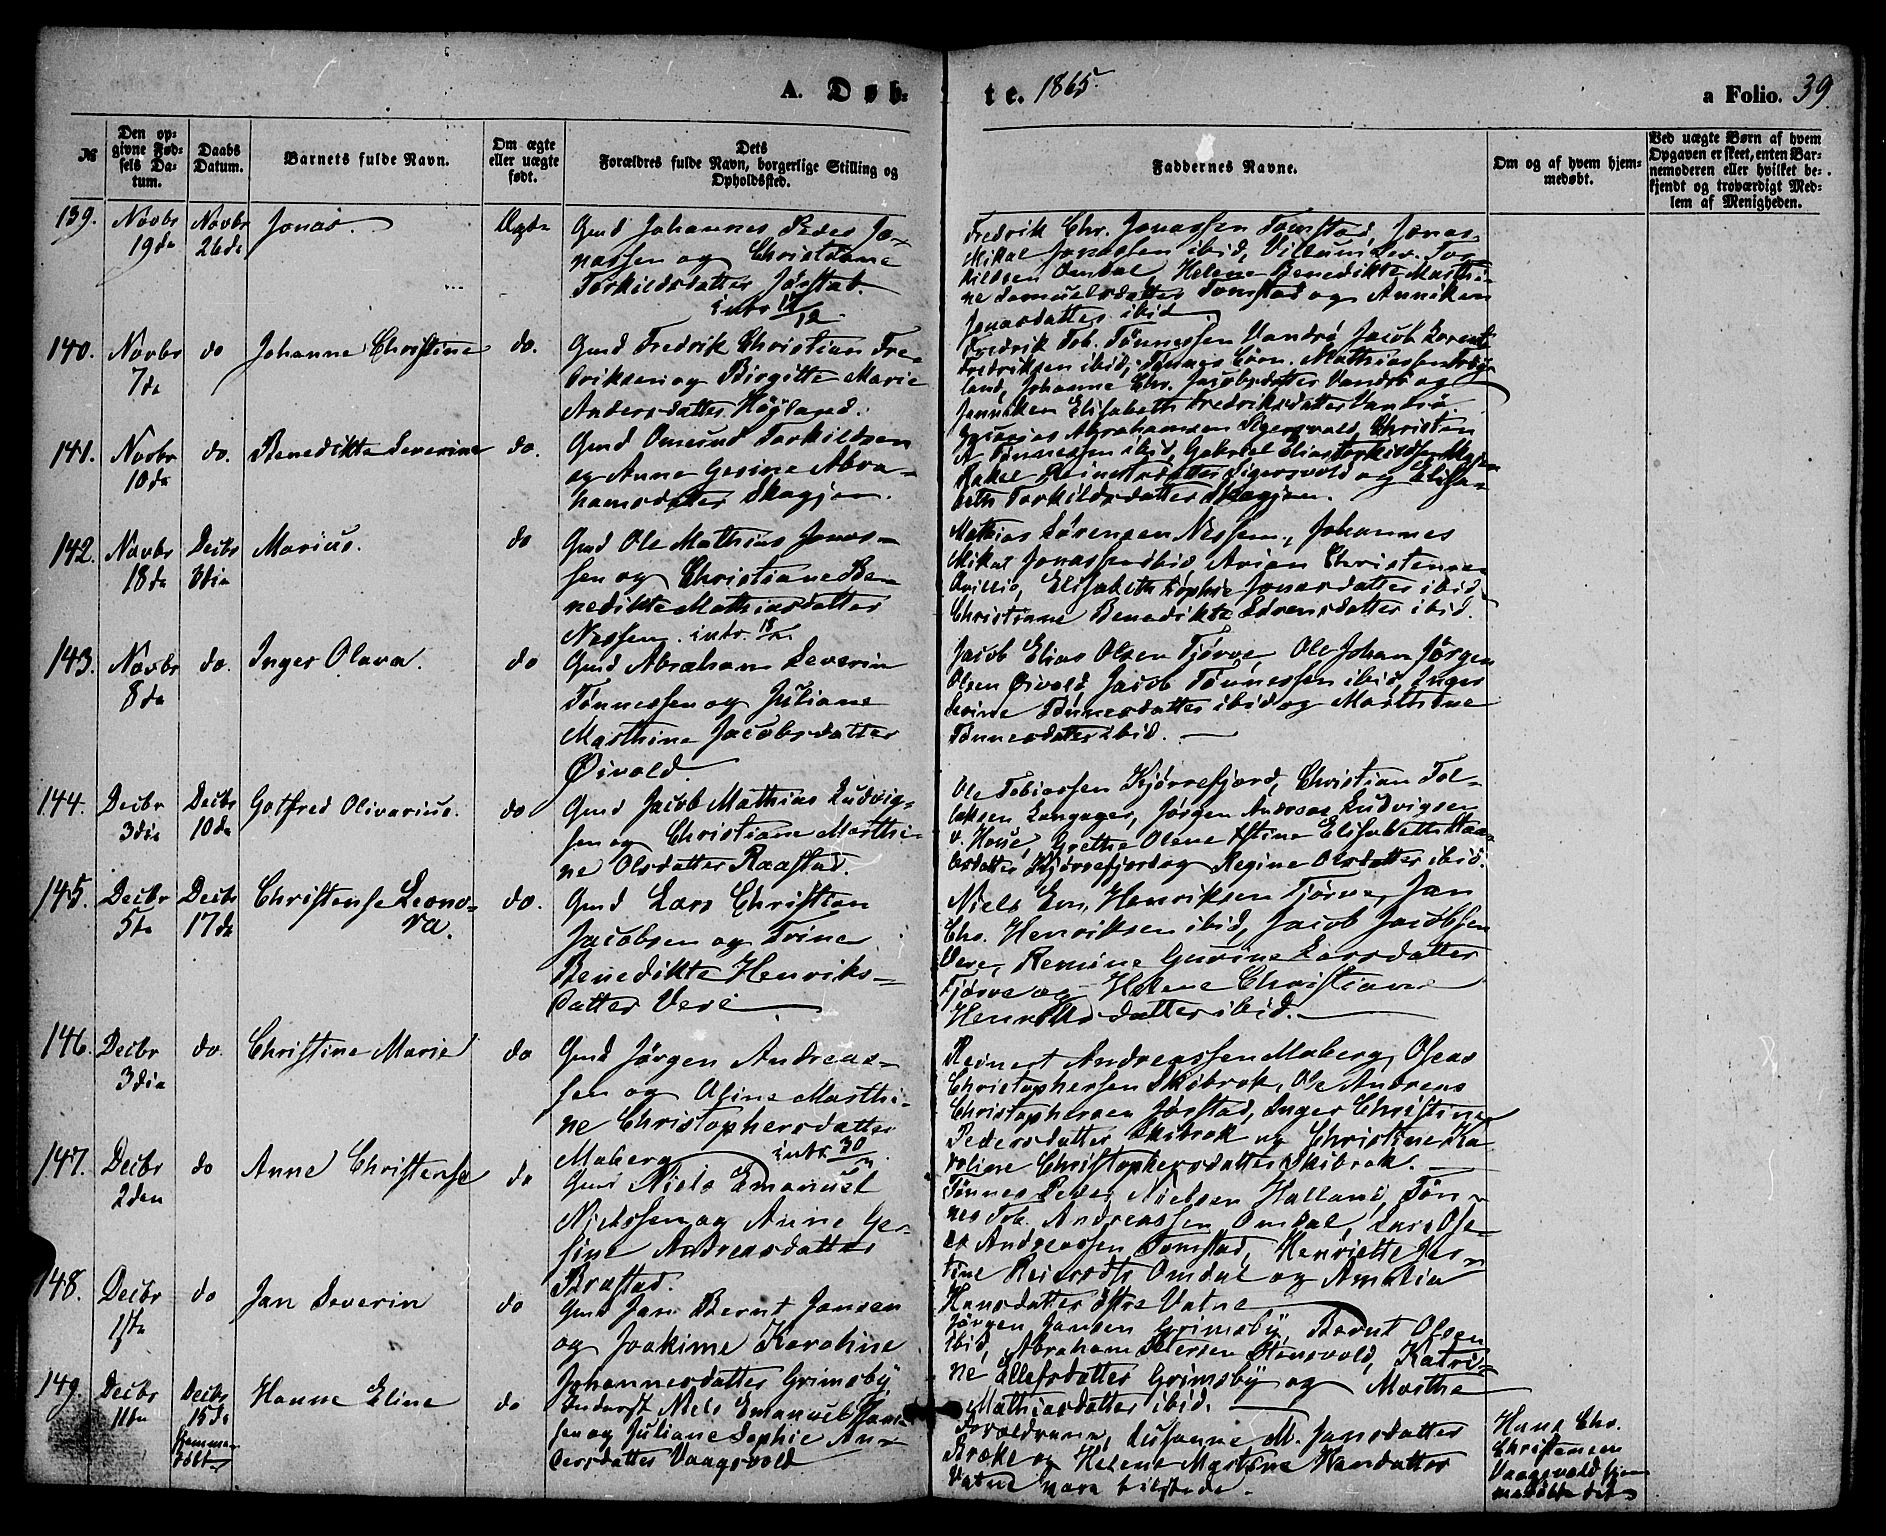 A. Døb-
te. 1865.
a Folio. 39
№
Den op-
givne Fød-
sels Da-
tum.
Daabs
Datum.
Barnets fulde Navn.
Om ægte
eller uægte
født.
Dets
Forældres fulde Navn, borgerlige Stilling og
Opholdssted.
Faddernes Navne.
Om og af hvem hjem-
medøbt.
Ved uægte Børn af hvem
Opgaven er skeet, enten Bar-
nemoderen eller hvilket be-
kjendt og troværdigt Med-
lem af Menigheden.
139. Novbr 19de
Novbr 26de
Jonas.
Ægte
Gmd Johannes Peder Jo-
nassen og Christiane
Torkildsdatter Jørstad
intr. 17/12
Fredrik Chr. Jonassen Tomstad, Jonas
Mikal Jonassen ibid, Villum Sev. Tor-
kildsen Omdal, Helene Benedikte Marthi-
ne Samuelsdatter Tomstad og Anniken
Jonasdatter ibid
140. Novbr 7de
do
Johanne Christine
do.
Gmd Fredrik Christian Fre-
driksen og Birgitte Marie
Andersdatter Høyland.
Fredrik Tob. Tønnessen Vandsø, Jacob Lorents
Fredriksen ibid, Tønnes Corn. Mathiassen Høy-
land, Johanne Chr. Jacobsdatter Vandsø og
Janniken Elisabeth Fredriksdatter Vandsø
141. Novbr 10de
do.
Benedikte Severine
do.
Gmd Omund Torkildsen
og Anne Gesine Abra-
hamsdatter Skagjen.
Abrahamsen Sigersvold, Christen
A Tønnessen ibid, Gabriel Elias Torkildsen
Rakel Reinertsdatter Sigersvold og Elisa-
beth Torkildsdatter Skagjen.
142. Novbr 18de
Decbr 3die
Marius.
do
Gmd Ole Mathias Jonas-
sen og Christiane Be-
nedikte Mathiasdatter
Nessem. intr.
Mathias Sørensen Nessem, Johannes
Mikal Jonassen ibid, Arian Christensen
Qvillio, Elisabeth Sophie Jonasdatter ibid
Christiane Benedikte Sørensdatter ibid.
143. Novbr 8de
do.
Inger Olava.
do
Gmd Abraham Severin
Tønnessen og Juliane
Marthine Jacobsdatter
Øivold.
Jacob Elias Olsen Tjørve, Ole Johan Jørgen
Olsen Øivold, Jacob Tønnessen ibid, Inger
Serine Tønnesdatter ibid og Marthine
Tønnesdatter ibid.
144. Decbr 3die
Decbr 10de
Gotfred Olivarius.
do
Gmd Jacob Mathias Ludvig-
sen og Christiane Marthi-
ne Olsdatter Raastad.
Ole Tobiassen Kjørrefjord, Christian Tol-
laksen Langager, Jørgen Andreas Ludvigsen
v. Houe, Grethe Olene Stine Elisabeth
datter Kjørrefjord og Regine Olsdatter ibid.
145. Decbr 5te
Decbr 17de
Christense Leono-
ra.
do.
Gmd Lars Christian
Jacobsen og Trine
Benedikte Henriks-
datter Vere
Niels Em. Henriksen Tjørve, Jan
Chr. Henriksen ibid, Jacob Jacobsen
Vere, Remine Gurine Larsdatter
Tjørve og Helene Christiane
Henriksdatter ibid.
146. Decbr 3die
do.
Christine Marie
do
Gmd Jørgen Andreas-
sen og Oline Marthi-
ne Christophersdatter
Maberg intr. 30/
Reinert Andreassen Maberg, Oseas
Christophersen Skibrok, Ole Andreas
Christophersen Jørstad, Inger Christine
Pedersdatter Skibrok og Christine Ka
roline Christophersdatter Skibrok.
147. Decbr 2den
do
Anne Christense
do
Gmd Niels Emanuel
Nielssen og Anne Ge-
sine Andreasdatter
Brastad.
Tønnes Peder Nielsen Halland, Tøn-
nes Tob. Andreassen Omdal, Lars Ose-
as Andreassen Tomstad, Henriette Ser-
ine Reiersdtr Omdal og Amalia
Hansdatter østre Vatne
148. Decbr 1ste
do
Jan Severin
do
Gmd Jan Bernt Jansen
og Joakime Karoline
Johannesdatter Grimsby
Jørgen Jansen Grimsby, Bernt Olsen
ibid, Abraham Petersen Stensvold, Katri-
ne Ellefsdatter Grimsby og Marthe
Mathiasdatter ibid.
149. Decbr 11te
Decbr 15de
hjemme-
døbt
Hanne Eline
do
Inderst Niels Emanuel
sen og Juliane Sophie An-
dersdatter Vaagsvold
Forældrene, Susanne M. Jansdatter
Bråke og Helene Martine Hansdatter
Vatne vare tilstede.
Hans Chr.
Christensen
Vaagsvold hjem-
medøbte det